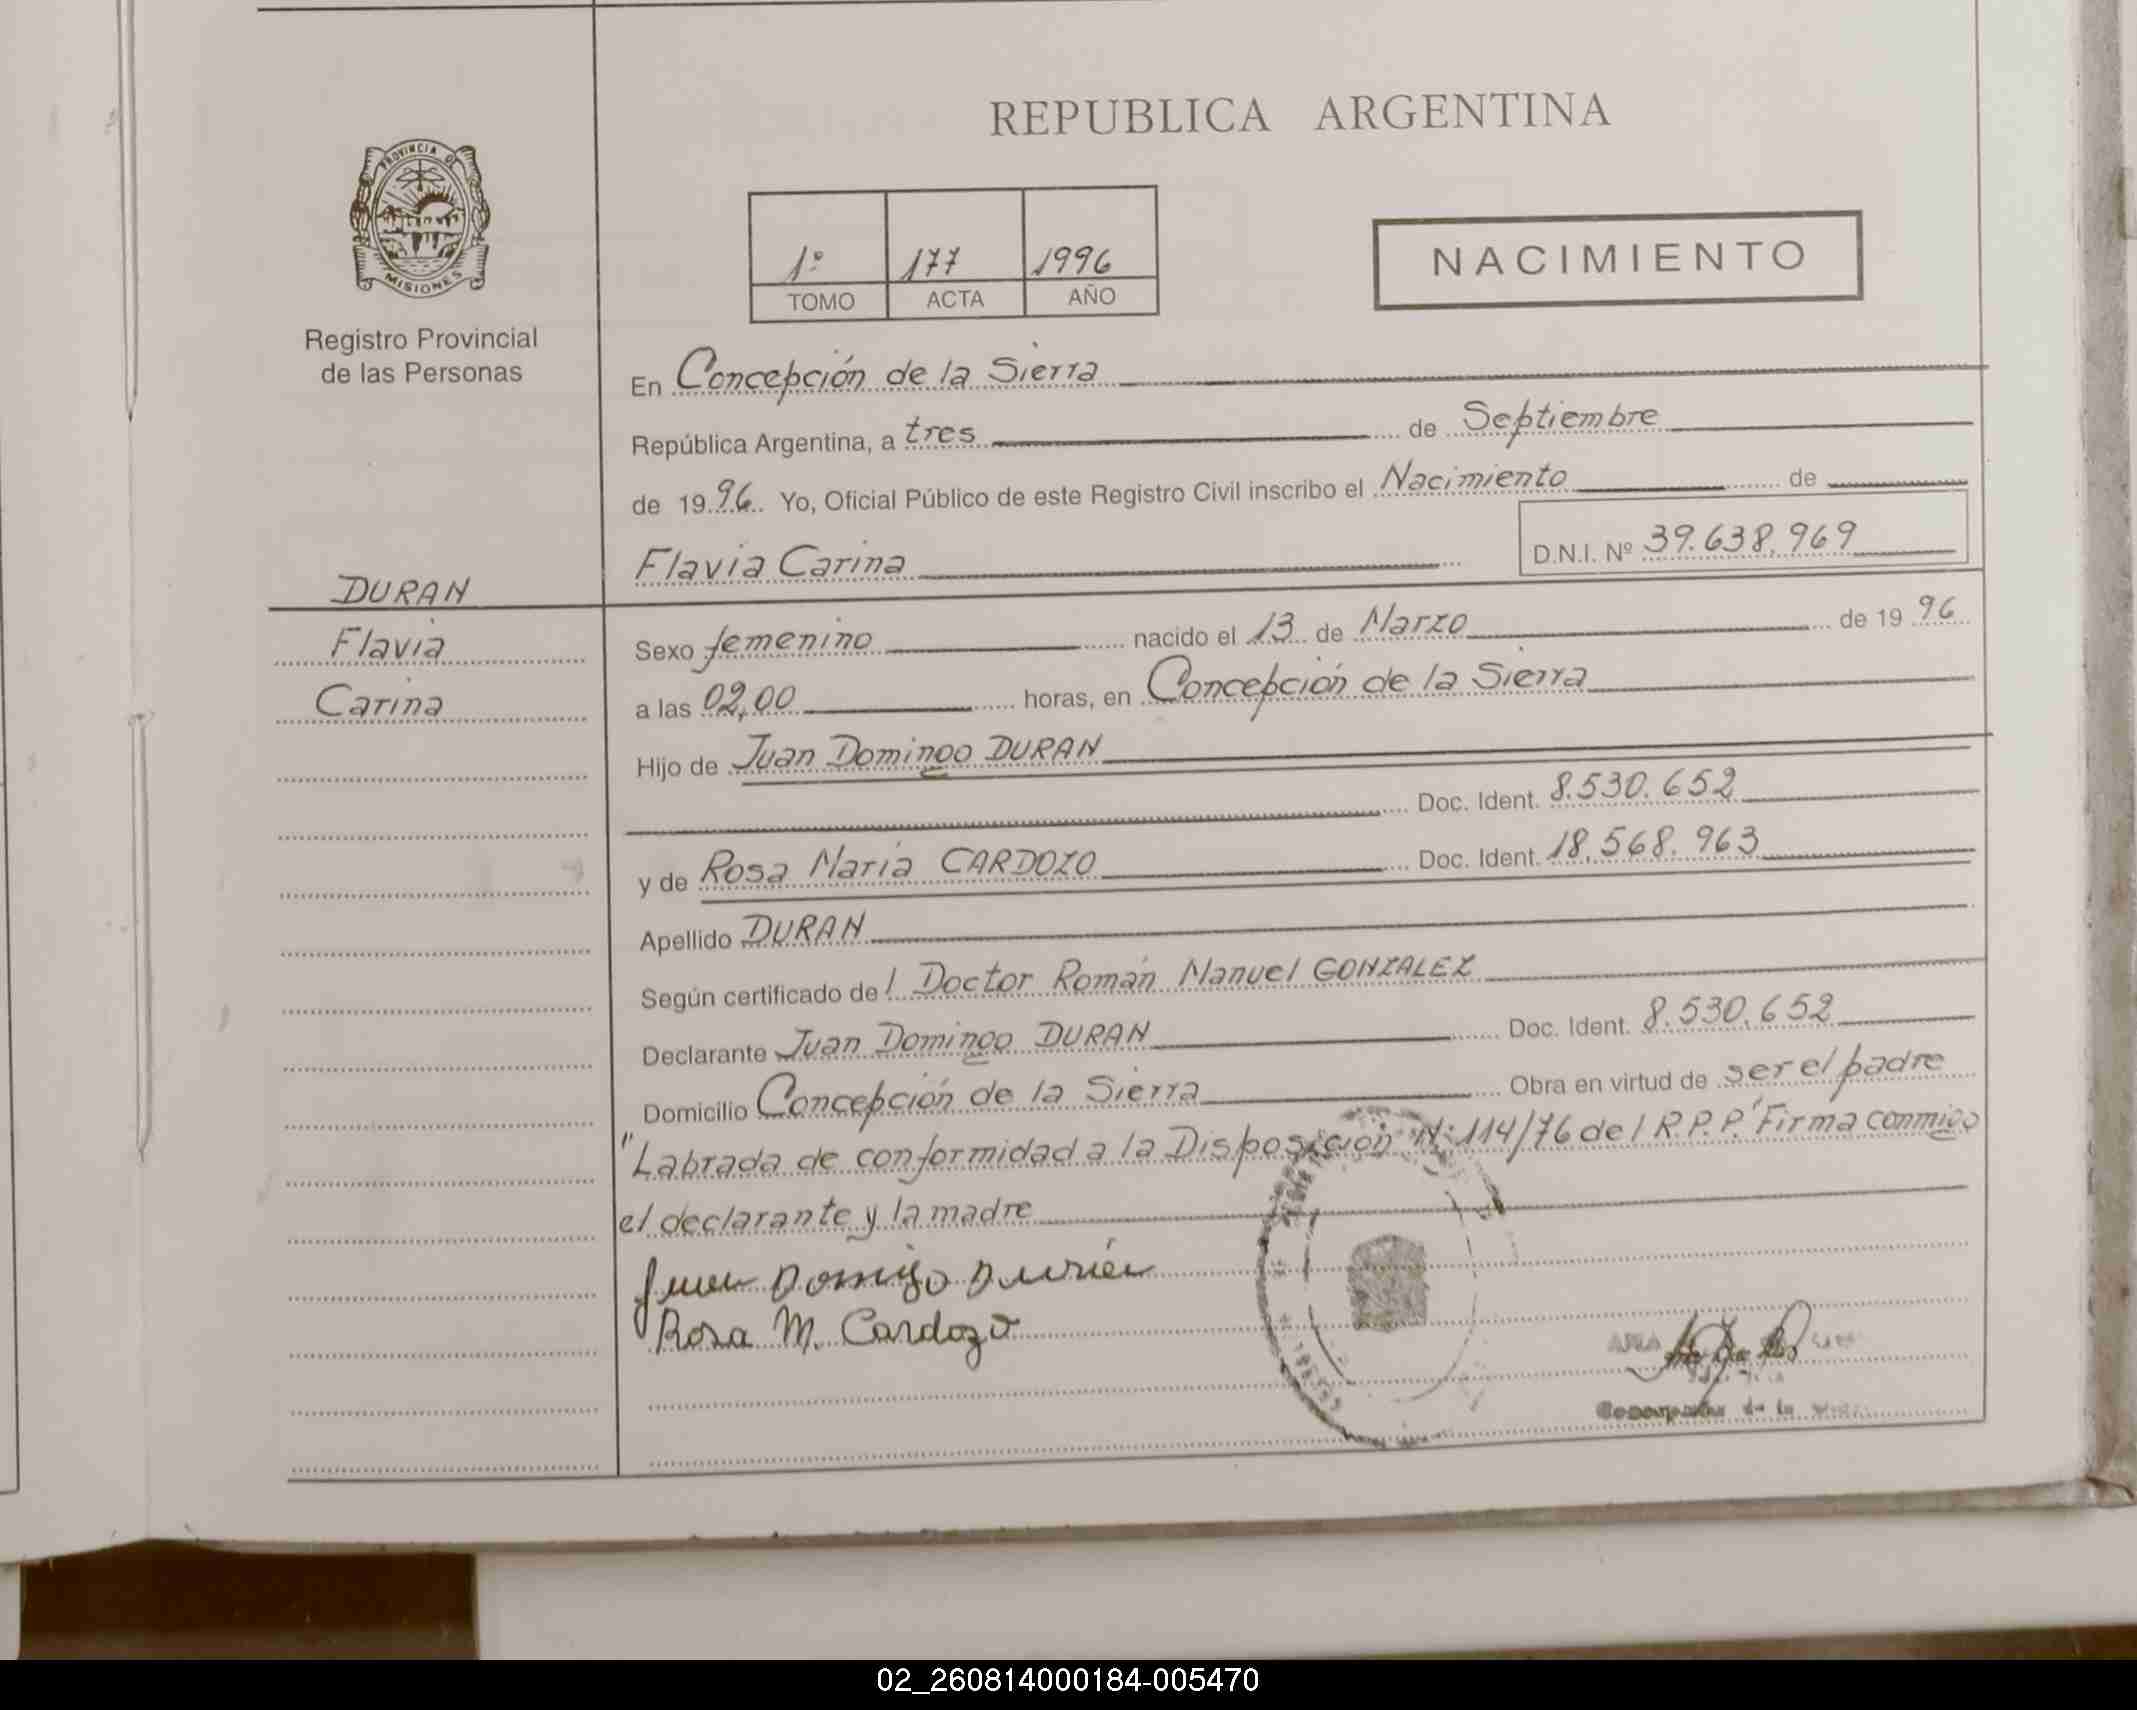 REPUBLICA ARGENTINA
PROVINCIA DE
MISIONES
Registro Provincial
de las Personas
1º 177 1996
TOMO ACTA AÑO
NACIMIENTO
En Concepción de la Sierra
República Argentina, a tres de Septiembre
de 1996. Yo, Oficial Público de este Registro Civil inscribo el Nacimiento de
Flavia Carina D.N.I. Nº 39.638.969
DURAN
Flavia
Carina
Sexo femenino nacido el 13 de Marzo de 1996
a las 02,00 horas, en Concepción de la Sierra
Hijo de Juan Domingo DURAN
Doc. Ident. 8.530.652
y de Rosa Maria CARDOZO Doc. Ident. 18.568.963
Apellido DURAN
Según certificado del Doctor Román Manuel GONZALEZ
Declarante Juan Domingo DURAN Doc. Ident. 8.530.652
Domicilio Concepción de la Sierra Obra en virtud de ser el padre
"Labrada de conformidad a la Disposición Nº 114/76 del R.P.P." Firma conmigo
el declarante y la madre
Juan Domingo Durán
Rosa M. Cardozo
de la
02_260814000184-005470